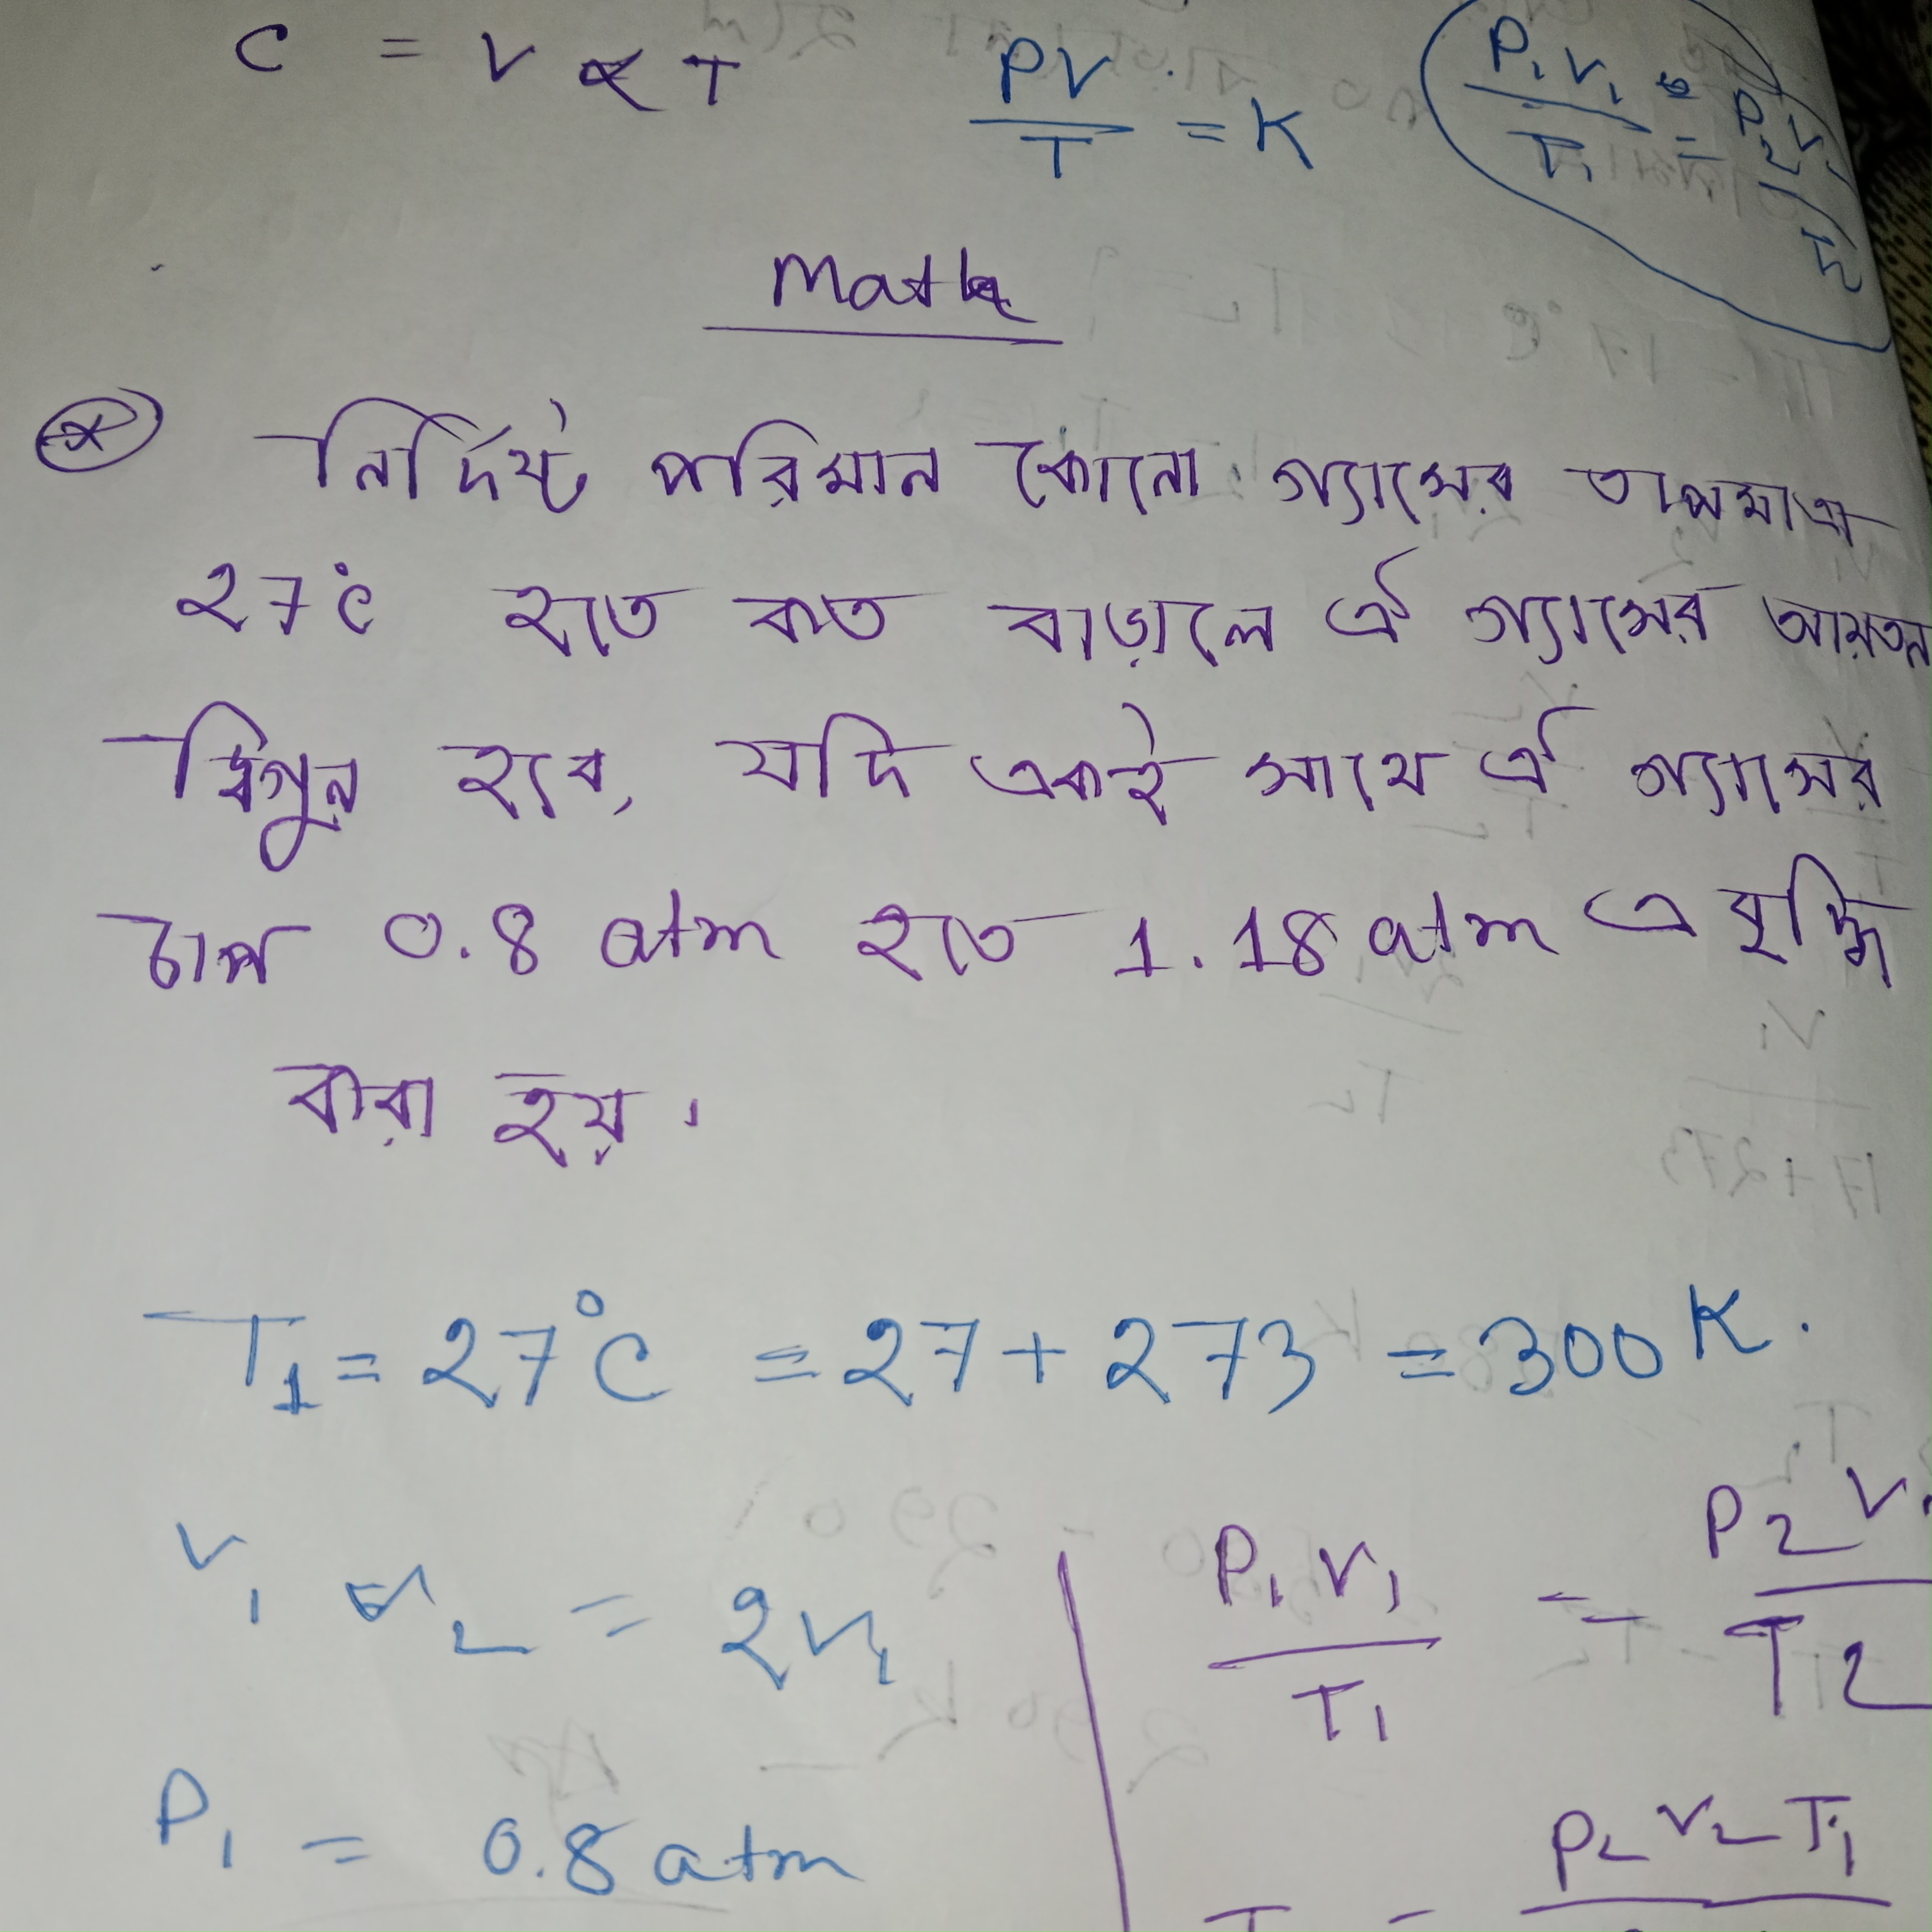 C = V ∝ T PV/T = K P₁V₁/T₁ = P₂V₂/T₂
Math
নির্দিষ্ট পরিমান কোনো গ্যাসের তাপমাত্রা
27°C হতে কত বাড়ালে ঐ গ্যাসের আয়তন
দ্বিগুন হবে, যদি একই সাথে ঐ গ্যাসের
চাপ 0.8 atm হতে 1.18 atm এ বৃদ্ধি
করা হয়।
T₁ = 27°C = 27 + 273 = 300 K.
V₁ V₂ = 2V₁
P₁V₁/T₁ = P₂V₂/T2
P₁ = 0.8 atm
P₂V₂T₁